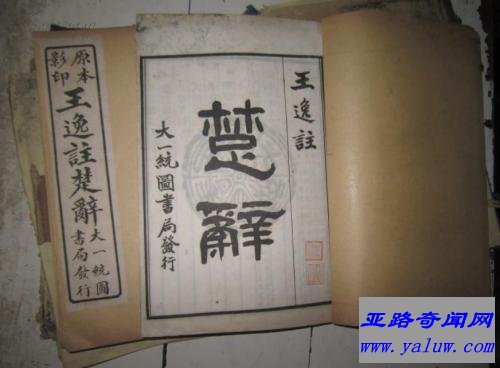 原本
影印
王逸註楚辭
大一統圖
書局發行
王逸註
楚辭
大一統圖書局發行
亚路奇闻网
www.yaluw.com